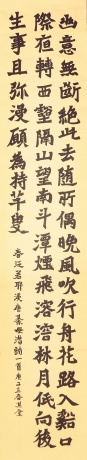 幽意無斷絕此去隨所偶晚風吹行舟花路入谿口
際亱轉西壑隔山望南斗潭煙飛溶溶林月低向後
生事且弥漫願為持竿叟
春泛若耶溪唐綦毋潛詩一首庚子